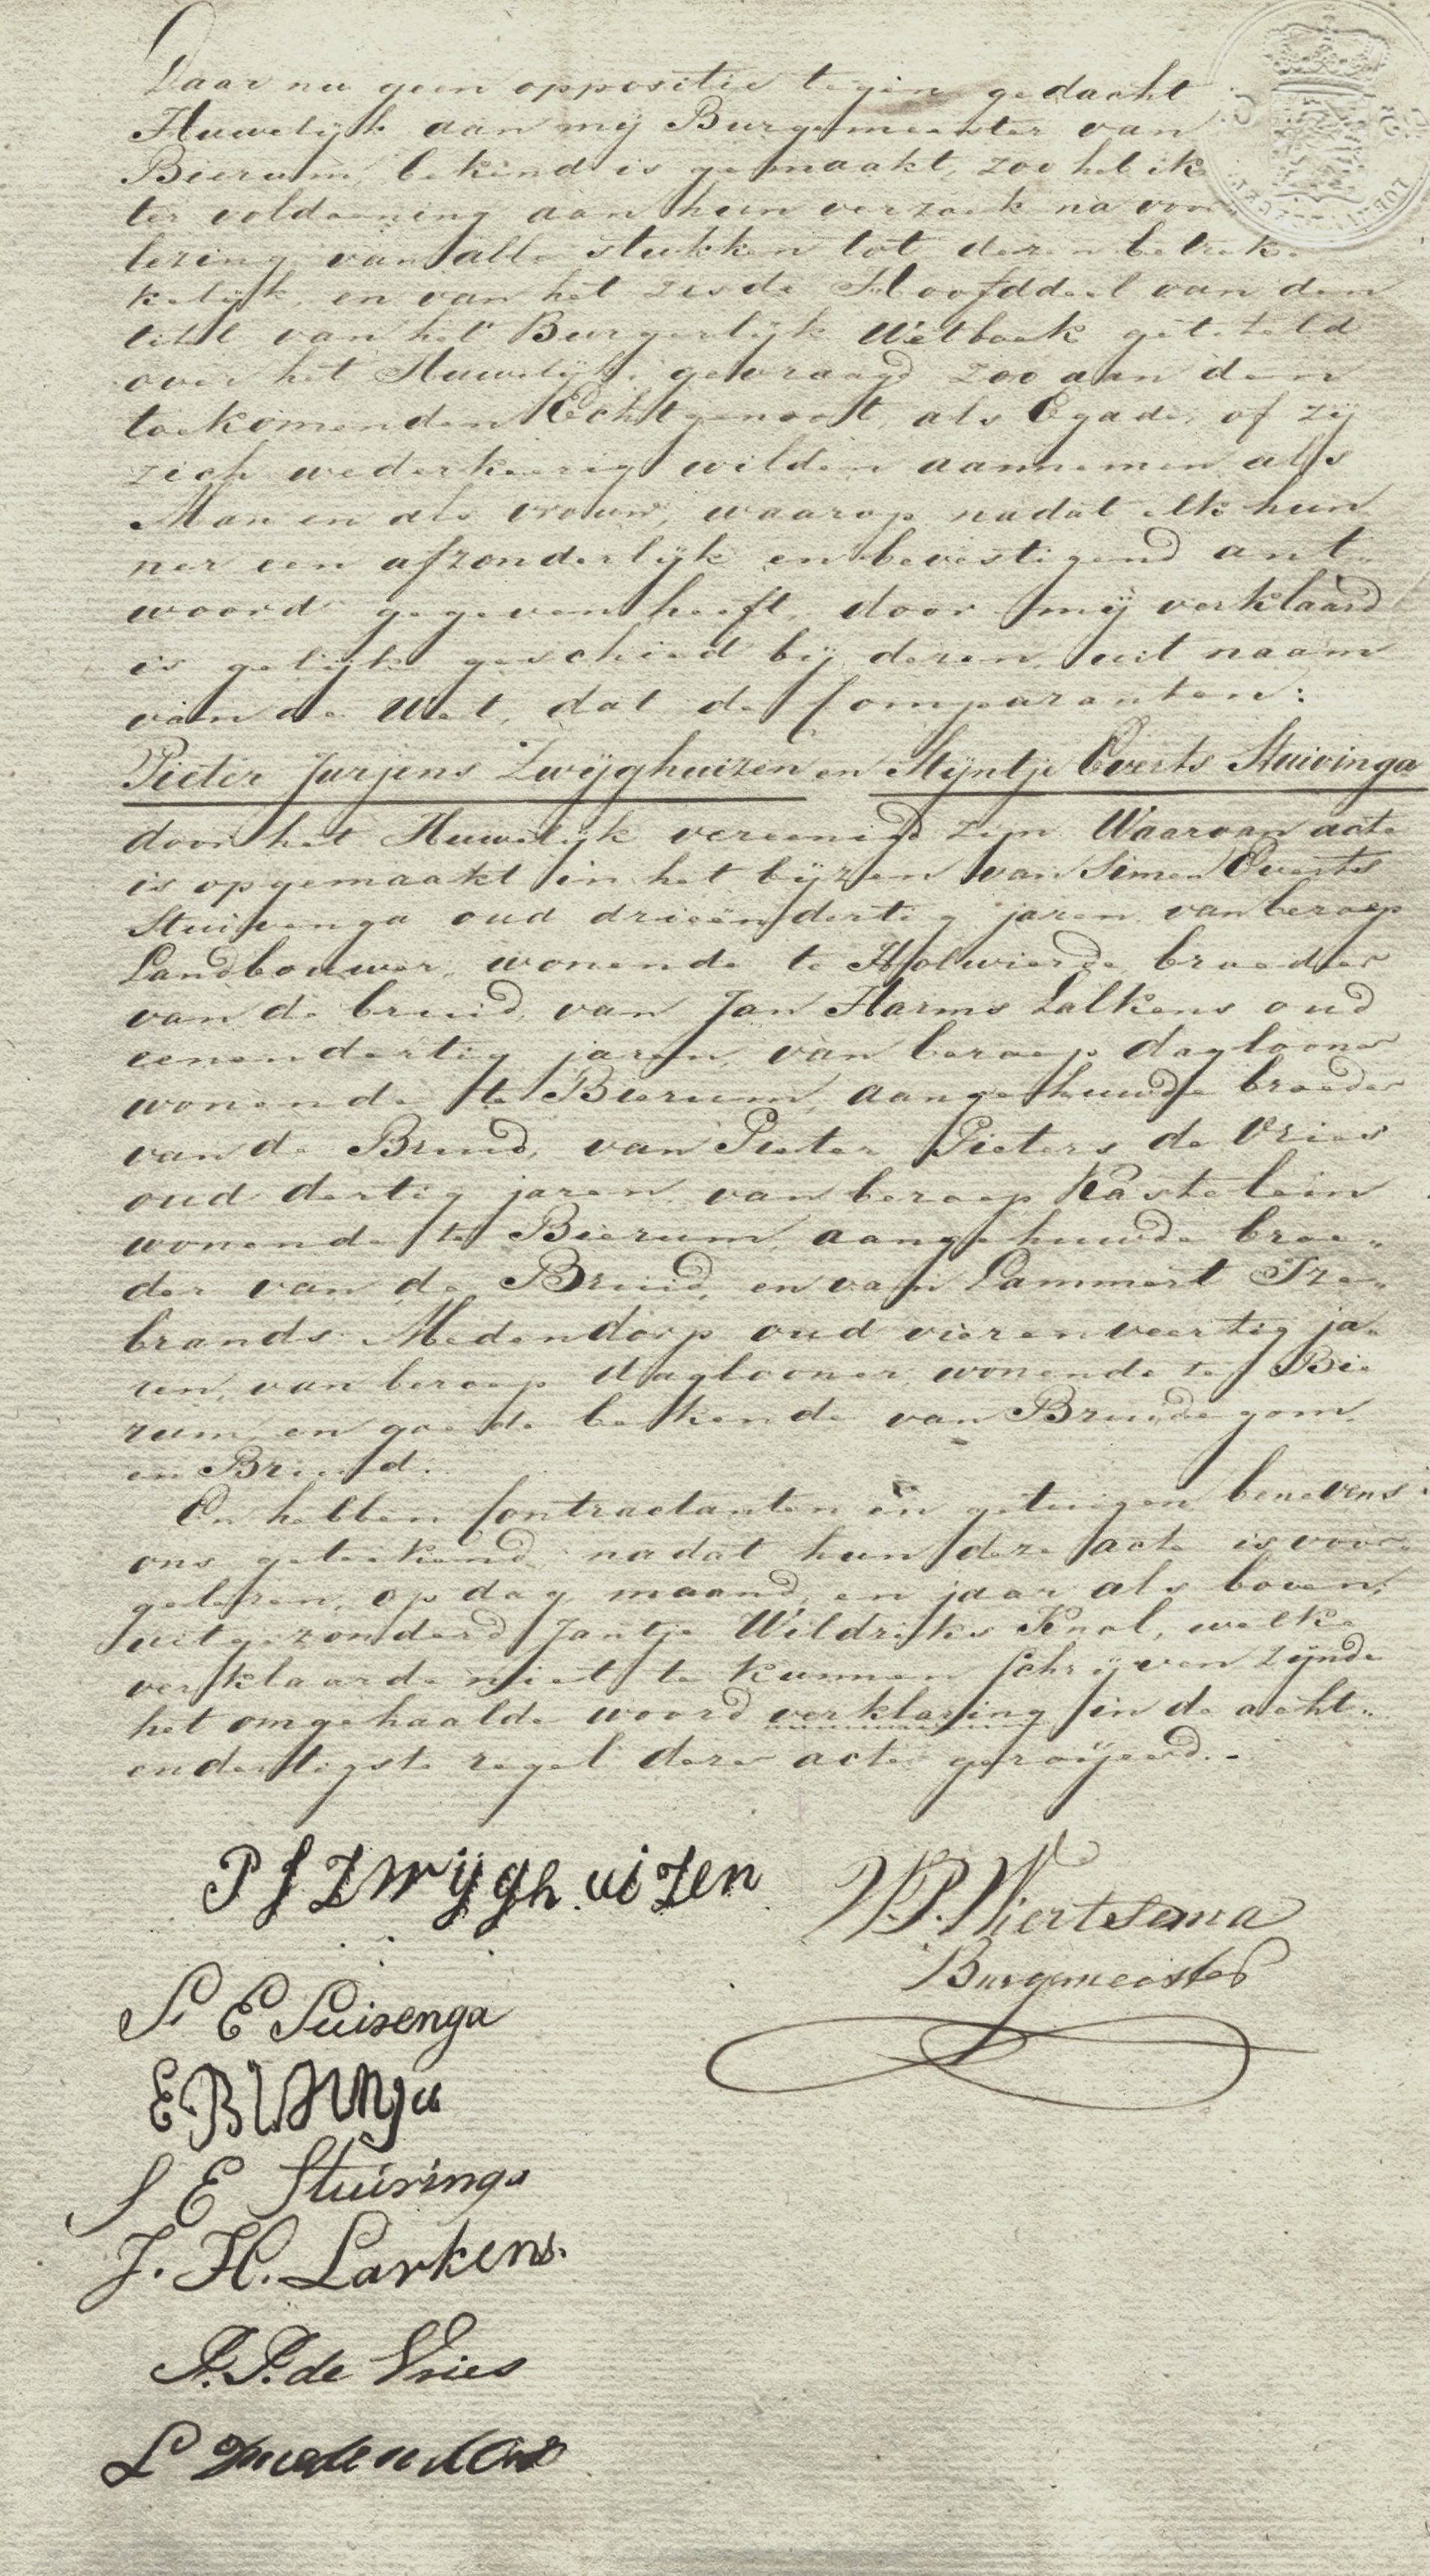 Daar nu geen oppositie tegen gedacht
Huwelijk aan mij Burgemeester van
Bierum, bekend is gemaakt, zoo heb ik
ter voldoening aan hun verzoek na voor
lezing van alle stukken tot dezen betrek-
kelijk, en van het zesde Hoofddeel van den
titel van het Burgerlijk Wetboek getiteld
over het Huwelijk, gevraagd zoo aan den
toekomenden Echtgenoot, als Egade, of zij
zich wederkeerig wilden aannemen als
Man en als vrouw, waarop nadat elk hun
ner een afzonderlijk en bevestigend ant-
woord gegeven heeft, door mij verklaard
is gelijk geschied bij dezen, uit naam
van de Wet, dat de Comparanten:
Pieter Jurjens Zwijghuizen en Mijntje Everts Stuivinga
door het Huwelijk vereenigd zijn. Waarvan acte
is opgemaakt in het bijzen van Simen Everts
Stuivenga oud drieëndertig jaren van beroep
Landbouwer, wonende te Holwierde broeder
van de bruid, van Jan Harms Lalkens oud
eenendertig jaren, van beroep daglooner
wonende te Bierum, aangehuwde broeder
van de Bruid, van Pieter Pieters de Vries
oud dertig jaren van beroep Kastelein
wonende te Bierum, aangehuwde broe-
der van de Bruid, en van Lammert IJze-
brands Medendorp oud vierenveertig ja-
ren, van beroep daglooner, wonende te Bie
rum, en goede bekende van Bruidegom
en Bruid.
En hebben Contractanten en getuigen benevens
ons geteekend nadat hun deze acte is voor-
gelezen, op dag maand, en jaar als boven,
uitgezonderd Jantje Wildriks Knol, welke
verklaarde niet te kunnen schrijven zijnde
het omgehaalde woord verklaring in de acht-
endertigste regel dezer acte geroijeerd.-
P J Zwijghuizen
W.P. Wiertsema
Burgemeester
E
S E Stuivinga
J. H. Larkens.
P. P. de Vries
L